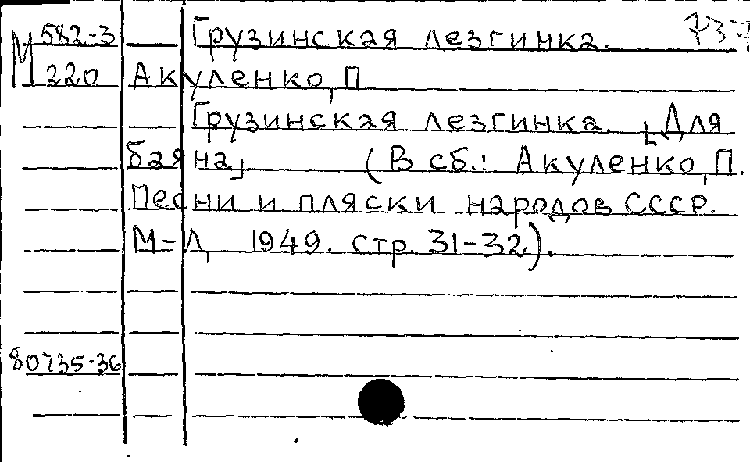 М 582-3 Грузинская лезгинка.
220 Акуленко, П
Грузинская лезгинка. [Для
баяна] (В сб.: Акуленко, П.
Песни и пляски народов СССР.
М-Л, 1949. стр. 31-32.).
80735-36